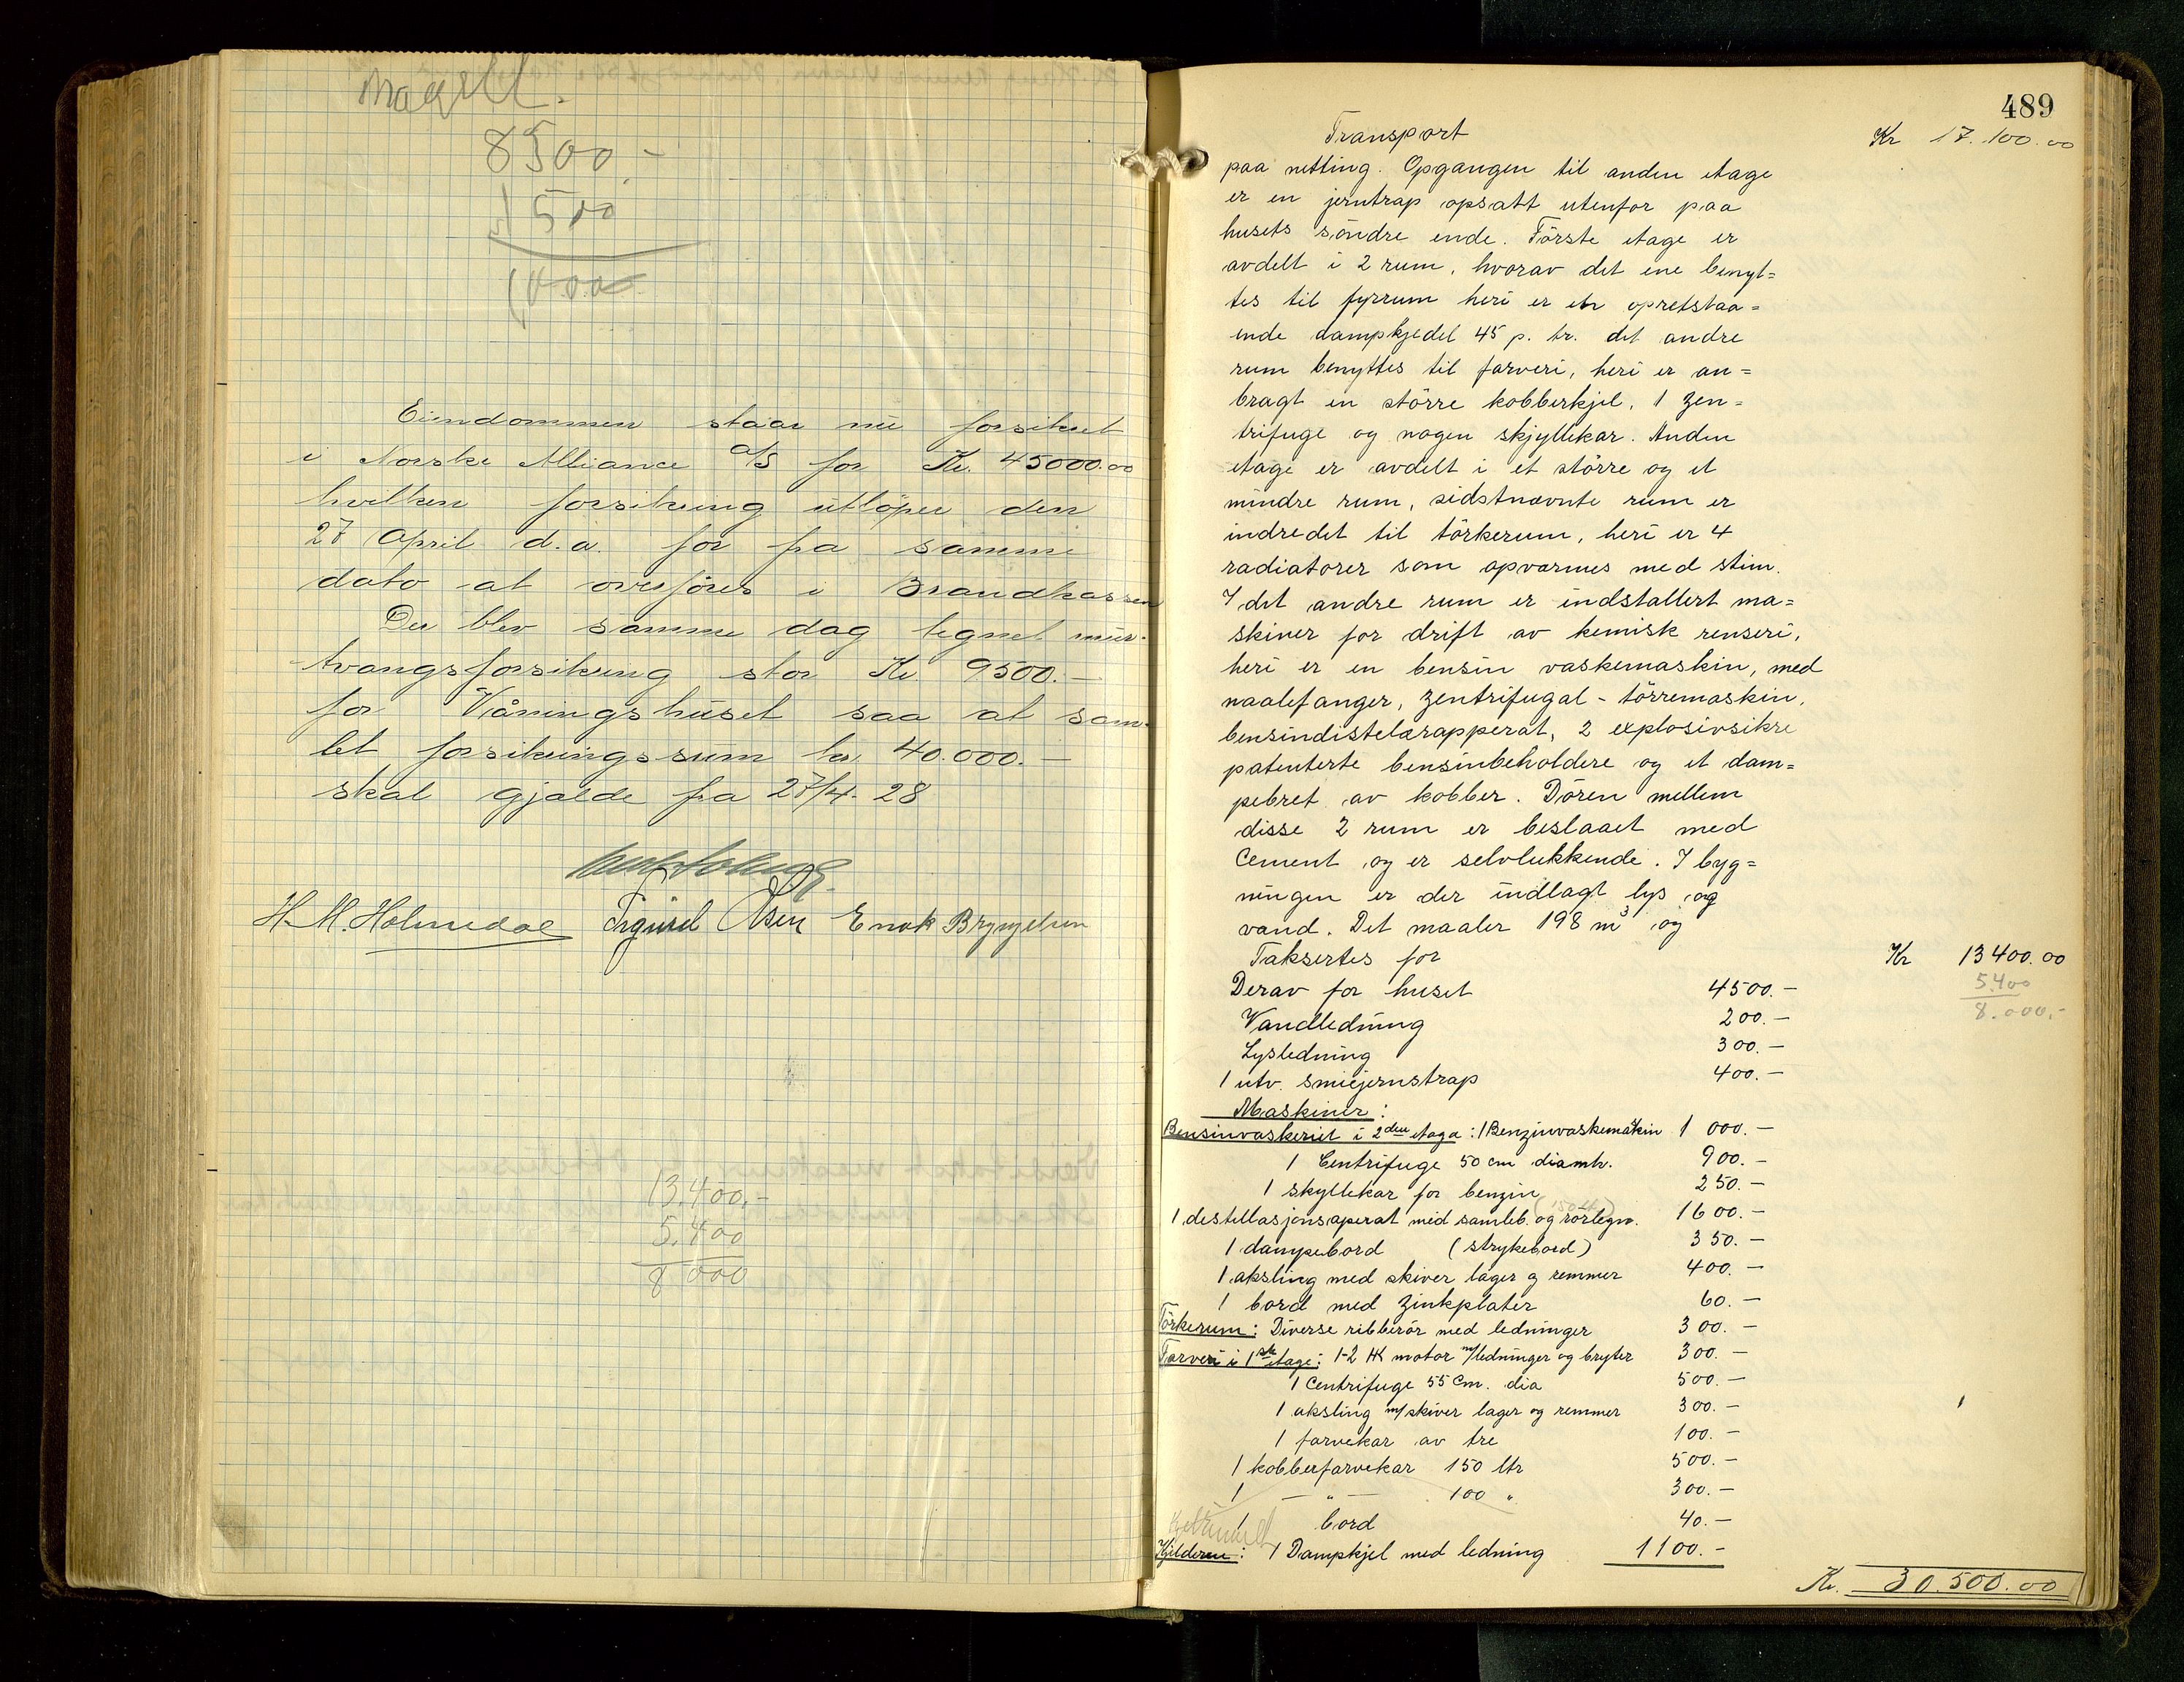 8500.-
1500
10000
Eiendommen staar nu forsikret
i Norske Alliance a/s for Kr. 45000.00
hvilken forsikring utløper den
27 April d.a. for fra samme
dato at overføres i Brandkassen
Der blev samme dag tegnet mur-
tvangsforsikring stor Kr 9500.-
for Våningshuset saa at sam-
let forsikringssum kr. 40.000.-
skal gjælde fra 27/4-28
H. M. Holmedal Sigurd Åsen Enok Brynjelsen
13.400,-
5.400
8 000
489
Transport Kr 17.100.00
paa netting. Opgangen til anden etage
er en jerntrap opsatt utenfor paa
husets söndre ende. Förste etage er
avdelt i 2 rum, hvorav det ene benyt=
tes til fyrrum heri er en opretstaa=
ende dampkjedel 45 p. tr. det andre
rum benyttes til farveri, heri er an=
bragt en större kobberkjel, 1 zen=
trifuge og nogen skjyllekar. Anden
etage er avdelt i et större og et
mindre rum, sidstnævnte rum er
indredet til törkerum, heri er 4
radiatorer som opvarmes med stim.
I det andre rum er indstallert ma=
skiner for drift av kemisk renseri,
heri er en bensin vaskemaskin, med
naalefanger, zentrifugal-törremaskin,
bensindistelarapperat, 2 explosivsikre
patenterte bensinbeholdere og et dam=
pebret av kobber. Dören mellem
disse 2 rum er beslaaet med
Cement og er selvlukkende. I byg=
ningen er der indlagt lys og
vand. Det maaler 198 m³ og
Taksertes for Kr 13400.00
Derav for huset 4500.- 5.400
Vandledning 200.- 8.000,-
Lysledning 300.-
1 utv. smiejernstrap 400.-
Maskiner:
Bensinvaskeriet i 2den etage: 1 Benzinvaskemaskin 1 000.-
1 Centrifuge 50 cm diamtr. 900.-
1 skyllekar for benzin 250.-
1 destillasjonsaperat med samleb. og rörlegn. 1600.-
1 dampebord (strykebord) 350.-
1 aksling med skiver lager g remmer 400.-
1 bord med zinkplater 60.-
Törkerum: Diverse ribberör med ledninger 300.-
Farveri i 1ste etage: 1-2 HK motor m/ledninger og bryter 300.-
1 Centrifuge 55 Cm. dia 500.-
1 aksling m/skiver lager og remmer 300.-
1 farvekar av tre 100.-
1 kobberfarvekar 150 ltr 500.-
1 - " - 100 " 300.-
1 bord 40.-
Kjelderen: 1 Dampkjel med ledning 1100.-
Kr. 30.500.00